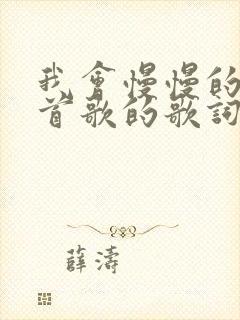 我會慢慢的
首歌的歌詞
薛濤